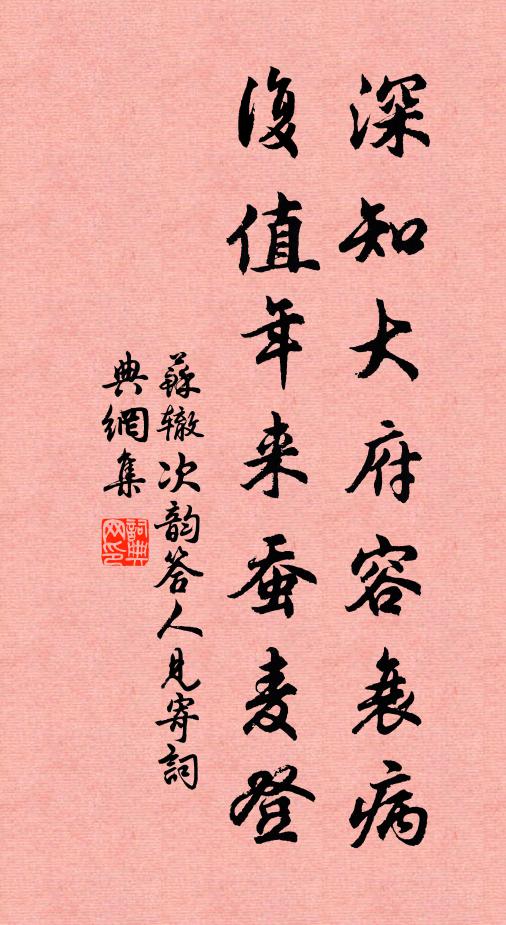 深知大府容衰病
復值年来蚕麦登
蘇辙次韵答人見寄詞
典網集
詞典网印